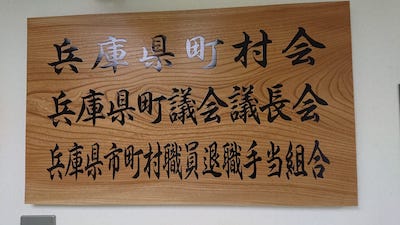 兵庫県町村会
兵庫県町議会議長会
兵庫県市町村職員退職手当組合